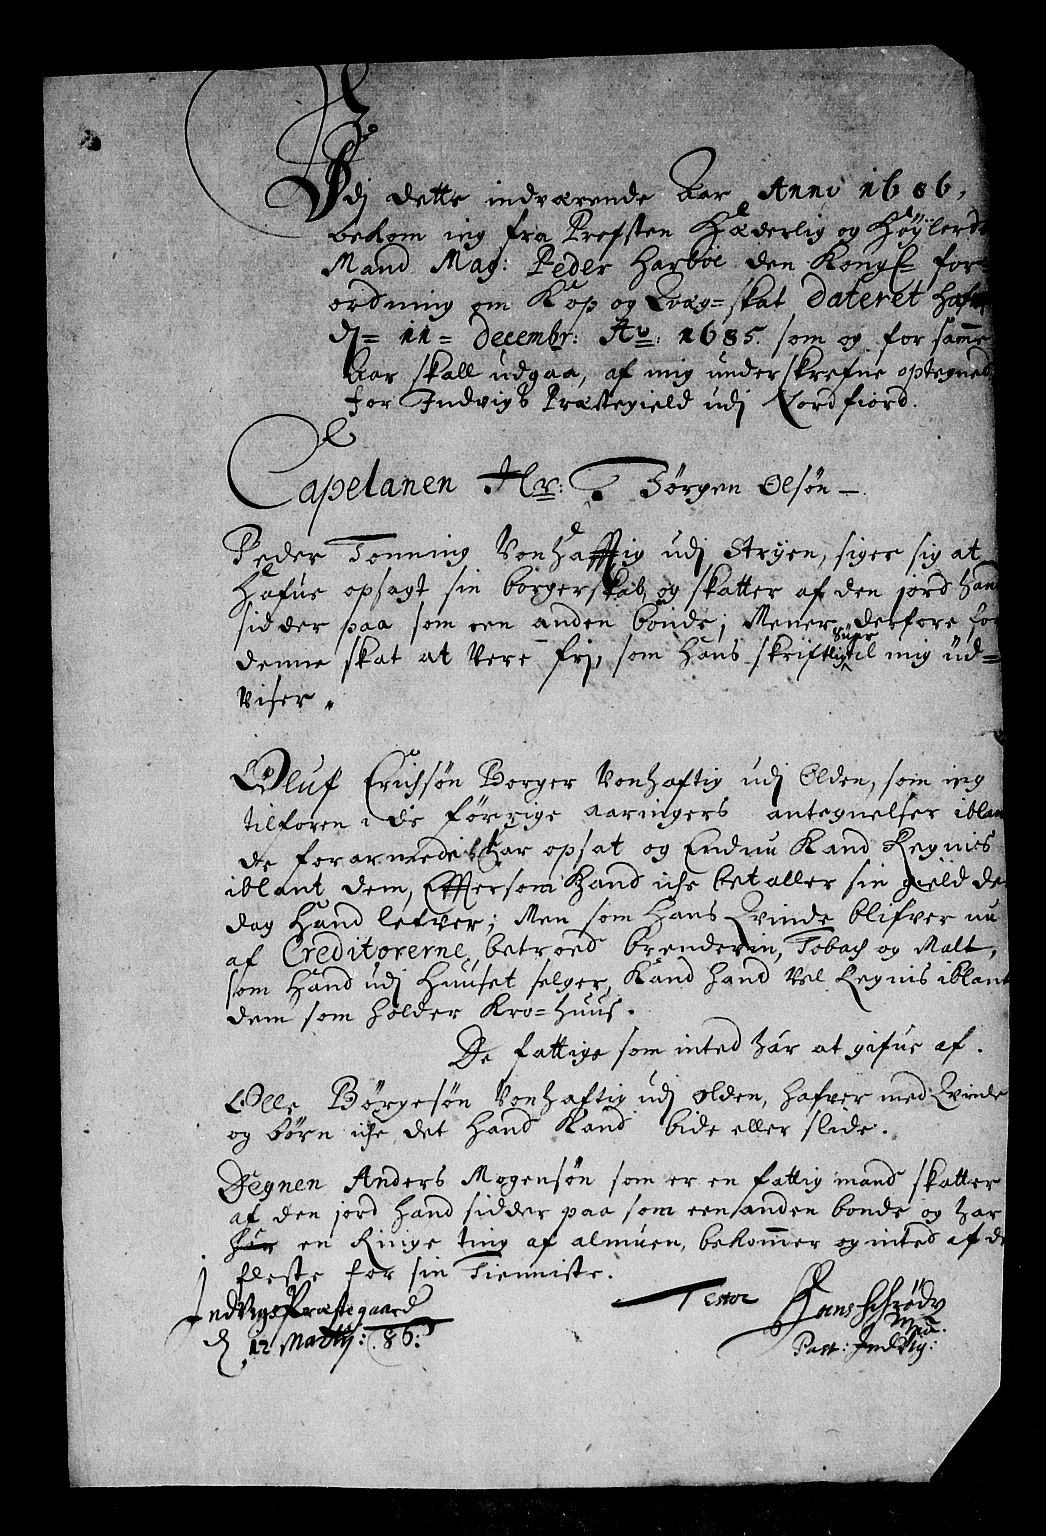 Udj dette indværende Aar Anno 1686,
bekom ieg fra Prefsten Hæderlig og Höÿlerde
Mand Mag: Peder Harboe den Kongl= for=
ordning om Kop og Qvæg=skat dateret Hafn
d= 11= decembr: Ao: 1685. som og for samme
Aar skall udgaa, af mig underskrefne optegned
for Indvigs Præstegield udj Nordfiord.
Capelanen Hr: Jörgen Olsön
Peder Tonning Vonhafftig udj Stryen, siger sig at
Hafue opsagt sin borgerskab, og skatter af den jord hand
sidder paa som een anden bonde; Mener derfore for
denne skat at Vere frj, som hans skriftlig til mig üd=
Viser.
Oluf Erichsön Borger Vonhaftig udj Olden, som ieg
tilforen i de förrige aaringers antegnelser iblant
de forarmede har opsat og Endnu Kand Regnis
iblant dem, Efftersom hand iche betaller sin gield den
dag hand lefver; Men som hans Qvinde blifver nu
af Creditorerne betroed brendeviin, Tobach og Malt,
som Hand udj Huuset selger, Kand hand Vel Regnis iblant
dem som holder Kro=Huus.
De fattige som inted har at gifue af.
Olle Börgesön Vonhaftig udj olden, hafver med Qvinde
og börn iche det hand Kand bide eller slide.
Degnen Anders Mogensön som er en fattig mand skatter
af den jord hand sidder paa som een anden bonde og har
en Ringe ting af almuen, bekommer og inted af de
fleste for sin Tienniste.
Indvigs Præstegaard
d 12 Martij: 86.
Testor Hans Schröder
mpa.
Past: Indvig: